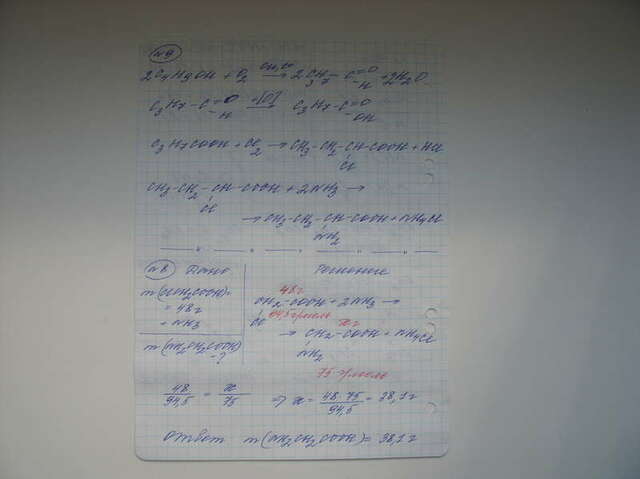 №9
2C4H9OH + O2 Cu, t° → 2C3H7-C=O -H + 2H2O
C3H7-C=O -H +[O] → C3H7-C=O -OH
C3H7COOH + Cl2 → CH3-CH2-CH-COOH + HCl
Cl
CH3-CH2-CH-COOH + 2NH3 →
Cl
→ CH3-CH2-CH-COOH + NH4Cl
NH2
№8 Дано Решение
m(ClCH2COOH)=
= 48 г
+ NH3
m(NH2CH2COOH) - ?
48 г
CH2-COOH + 2NH3 →
Cl 94,5 г/моль
x г
→ CH2-COOH + NH4Cl
NH2
75 г/моль
48/94,5 = x/75 => x = 48·75/94,5 = 38,1 г
Ответ m(NH2CH2COOH) = 38,1 г